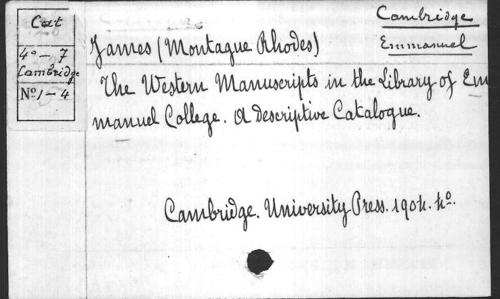 Cat
4º - 7
Cambridge
Nº 1 - 4
Cambridge
Emmanuel
James (Montague Rhodes)
The Western Manuscripts in the Library of Em
manuel College. A Descriptive Catalogue.
Cambridge. University Press. 1904. 4º.